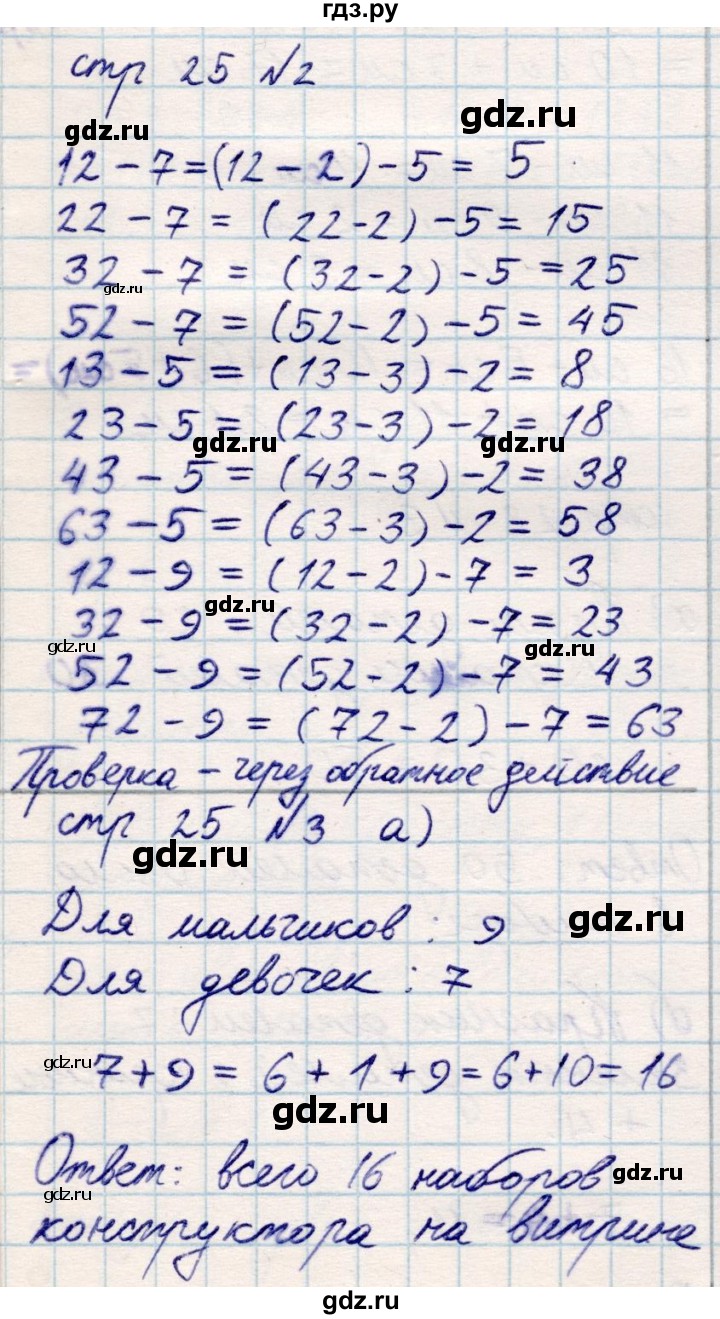 гдз.ру
стр 25 №2
gdz.ru
gdz.ru
12 - 7 = (12 - 2) - 5 = 5
22 - 7 = (22 - 2) - 5 = 15
32 - 7 = (32 - 2) - 5 = 25
gdz.ru
52 - 7 = (52 - 2) - 5 = 45
13 - 5 = (13 - 3) - 2 = 8
23 - 5 = (23 - 3) - 2 = 18
gdz.ru
gdz.ru
43 - 5 = (43 - 3) - 2 = 38
63 - 5 = (63 - 3) - 2 = 58
12 - 9 = (12 - 2) - 7 = 3
gdz.ru
32 - 9 = (32 - 2) - 7 = 23
gdz.ru
gdz.ru
52 - 9 = (52 - 2) - 7 = 43
72 - 9 = (72 - 2) - 7 = 63
Проверка - через обратное действие
стр 25 №3 а)
gdz.ru
Для мальчиков : 9
gdz.ru
Для девочек : 7
gdz.ru
7 + 9 = 6 + 1 + 9 = 6 + 10 = 16
gdz.ru
Ответ: всего 16 наборов
gdz.ru
gdz.ru
конструктора на витрине
gdz.ru